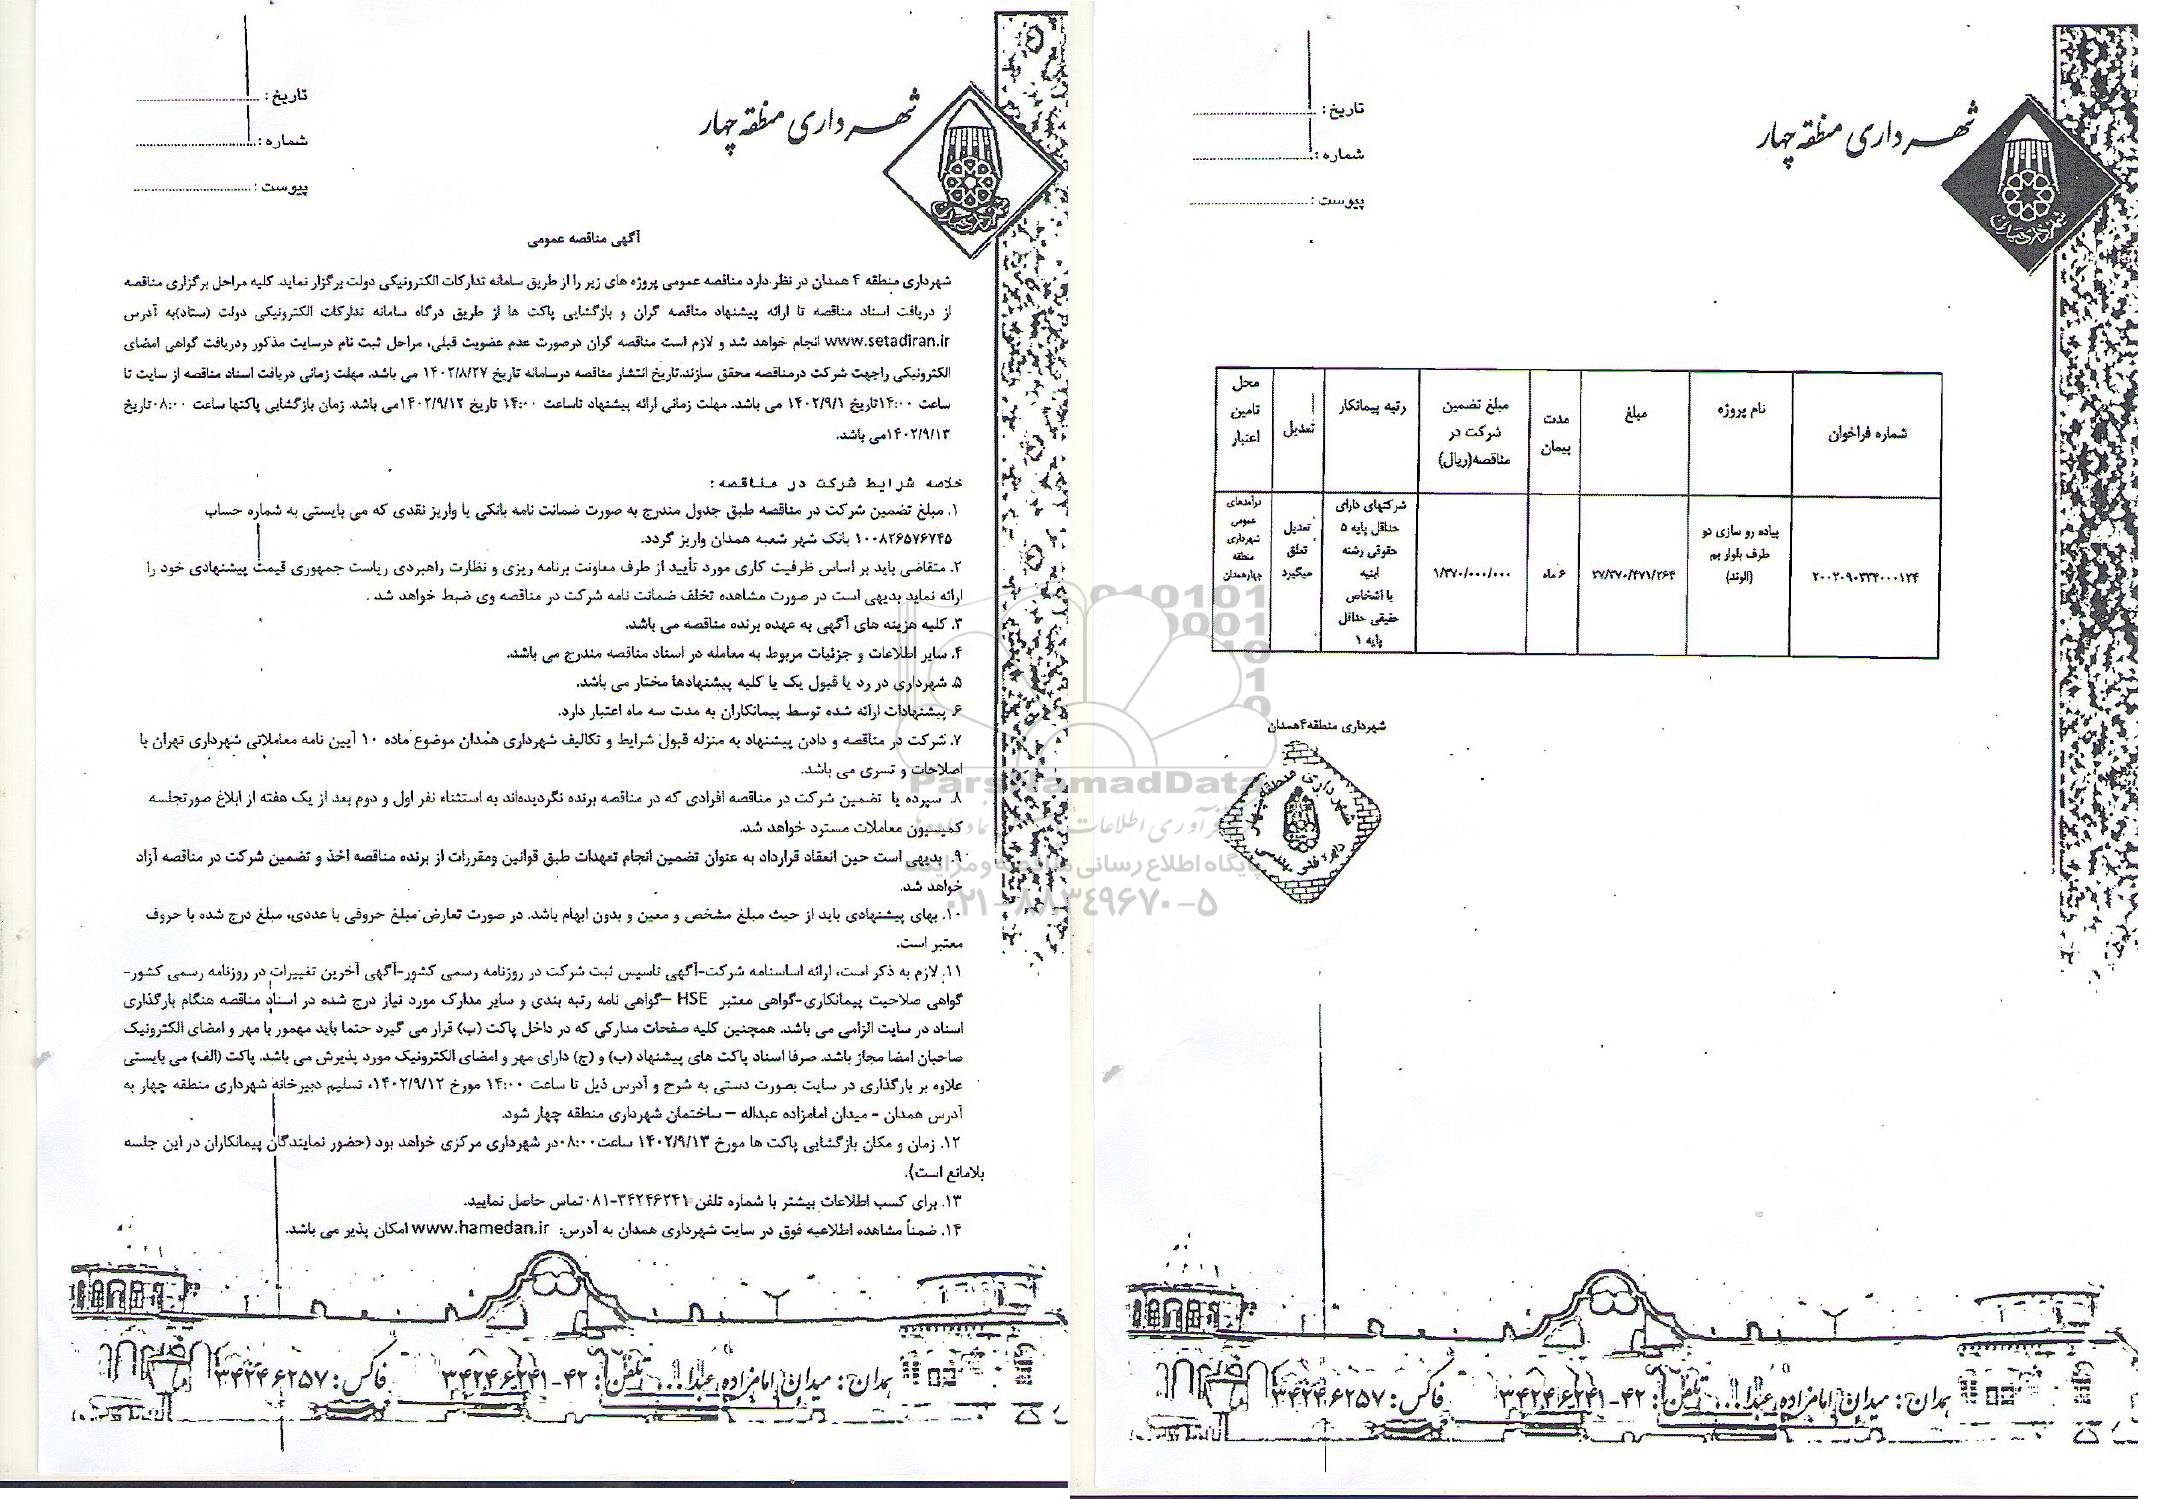 شهرداری منطقه چهار
تاریخ :
شماره :
پیوست :
آگهی مناقصه عمومی
شهرداری منطقه ۴ همدان در نظر دارد مناقصه عمومی پروژه های زیر را از طریق سامانه تدارکات الکترونیکی دولت برگزار نماید. کلیه مراحل برگزاری مناقصه
از دریافت اسناد مناقصه تا ارائه پیشنهاد مناقصه گران و بازگشایی پاکت ها از طریق درگاه سامانه تدارکات الکترونیکی دولت (ستاد)به آدرس
www.setadiran.ir انجام خواهد شد و لازم است مناقصه گران درصورت عدم عضویت قبلی، مراحل ثبت نام درسایت مذکور ودریافت گواهی امضای
الکترونیکی راجهت شرکت درمناقصه محقق سازند.تاریخ انتشار مناقصه درسامانه تاریخ ۱۴۰۲/۸/۲۷ می باشد. مهلت زمانی دریافت اسناد مناقصه از سایت تا
ساعت ۱۴:۰۰تاریخ ۱۴۰۲/۹/۱ می باشد. مهلت زمانی ارائه پیشنهاد تاساعت ۱۴:۰۰ تاریخ ۱۴۰۲/۹/۱۲می باشد. زمان بازگشایی پاکتها ساعت ۰۸:۰۰تاریخ
۱۴۰۲/۹/۱۳می باشد.
خلاصه شرایط شرکت در مناقصه :
۱. مبلغ تضمین شرکت در مناقصه طبق جدول مندرج به صورت ضمانت نامه بانکی یا واریز نقدی که می بایستی به شماره حساب
۱۰۰۸۲۶۵۷۶۷۴۵ بانک شهر شعبه همدان واریز گردد.
۲. متقاضی باید بر اساس ظرفیت کاری مورد تأیید از طرف معاونت برنامه ریزی و نظارت راهبردی ریاست جمهوری قیمت پیشنهادی خود را
ارائه نماید بدیهی است در صورت مشاهده تخلف ضمانت نامه شرکت در مناقصه وی ضبط خواهد شد .
۳. کلیه هزینه های آگهی به عهده برنده مناقصه می باشد.
۴. سایر اطلاعات و جزئیات مربوط به معامله در اسناد مناقصه مندرج می باشد.
۵. شهرداری در رد یا قبول یک یا کلیه پیشنهادها مختار می باشد.
۶. پیشنهادات ارائه شده توسط پیمانکاران به مدت سه ماه اعتبار دارد.
۷. شرکت در مناقصه و دادن پیشنهاد به منزله قبول شرایط و تکالیف شهرداری همدان موضوع ماده ۱۰ آیین نامه معاملاتی شهرداری تهران با
اصلاحات و تسری می باشد.
۸. سپرده یا تضمین شرکت در مناقصه افرادی که در مناقصه برنده نگردیده‌اند به استثناء نفر اول و دوم بعد از یک هفته از ابلاغ صورتجلسه
کمیسیون معاملات مسترد خواهد شد.
۹. بدیهی است حین انعقاد قرارداد به عنوان تضمین انجام تعهدات طبق قوانین ومقررات از برنده مناقصه اخذ و تضمین شرکت در مناقصه آزاد
خواهد شد.
۱۰. بهای پیشنهادی باید از حیث مبلغ مشخص و معین و بدون ابهام باشد. در صورت تعارض مبلغ حروفی با عددی، مبلغ درج شده با حروف
معتبر است.
۱۱. لازم به ذکر است، ارائه اساسنامه شرکت-آگهی تاسیس ثبت شرکت در روزنامه رسمی کشور-آگهی آخرین تغییرات در روزنامه رسمی کشور-
گواهی صلاحیت پیمانکاری-گواهی معتبر HSE -گواهی نامه رتبه بندی و سایر مدارک مورد نیاز درج شده در اسناد مناقصه هنگام بارگذاری
اسناد در سایت الزامی می باشد. همچنین کلیه صفحات مدارکی که در داخل پاکت (ب) قرار می گیرد حتما باید مهمور با مهر و امضای الکترونیک
صاحبان امضا مجاز باشد. صرفا اسناد پاکت های پیشنهاد (ب) و (ج) دارای مهر و امضای الکترونیک مورد پذیرش می باشد. پاکت (الف) می بایستی
علاوه بر بارگذاری در سایت بصورت دستی به شرح و آدرس ذیل تا ساعت ۱۴:۰۰ مورخ ۱۴۰۲/۹/۱۲، تسلیم دبیرخانه شهرداری منطقه چهار به
آدرس همدان - میدان امامزاده عبداله – ساختمان شهرداری منطقه چهار شود.
۱۲. زمان و مکان بازگشایی پاکت ها مورخ ۱۴۰۲/۹/۱۳ ساعت۰۸:۰۰در شهرداری مرکزی خواهد بود (حضور نمایندگان پیمانکاران در این جلسه
بلامانع است).
۱۳. برای کسب اطلاعات بیشتر با شماره تلفن ۳۴۲۴۶۲۴۱-۰۸۱تماس حاصل نمایید.
۱۴. ضمناً مشاهده اطلاعیه فوق در سایت شهرداری همدان به آدرس: www.hamedan.ir امکان پذیر می باشد.
همدان: میدان امامزاده عبدا... تلفن: ۴۲-۳۴۲۴۶۲۴۱ فاکس: ۳۴۲۴۶۲۵۷
شهرداری منطقه چهار
تاریخ :
شماره :
پیوست :
شماره فراخوان
نام پروژه
مبلغ
مدت پیمان
مبلغ تضمین شرکت در مناقصه(ریال)
رتبه پیمانکار
تعدیل
محل تامین اعتبار
۲۰۰۲۰۹۰۳۳۴۰۰۰۱۲۴
پیاده رو سازی دو طرف بلوار بم (الوند)
۲۷/۳۷۰/۴۷۱/۲۶۴
۶ ماه
۱/۳۷۰/۰۰۰/۰۰۰
شرکتهای دارای حداقل پایه ۵ حقوقی رشته ابنیه یا اشخاص حقیقی حداقل پایه ۱
تعدیل تعلق میگیرد
درآمدهای عمومی شهرداری منطقه چهارهمدان
شهرداری منطقه۴همدان
شهرداری منطقه چهار
ParsNamadData
پایگاه اطلاع رسانی مناقصه و مزایده
۰۲۱-۸۸۳۴۹۶۷۰-۵
همدان: میدان امامزاده عبدا... تلفن: ۴۲-۳۴۲۴۶۲۴۱ فاکس: ۳۴۲۴۶۲۵۷